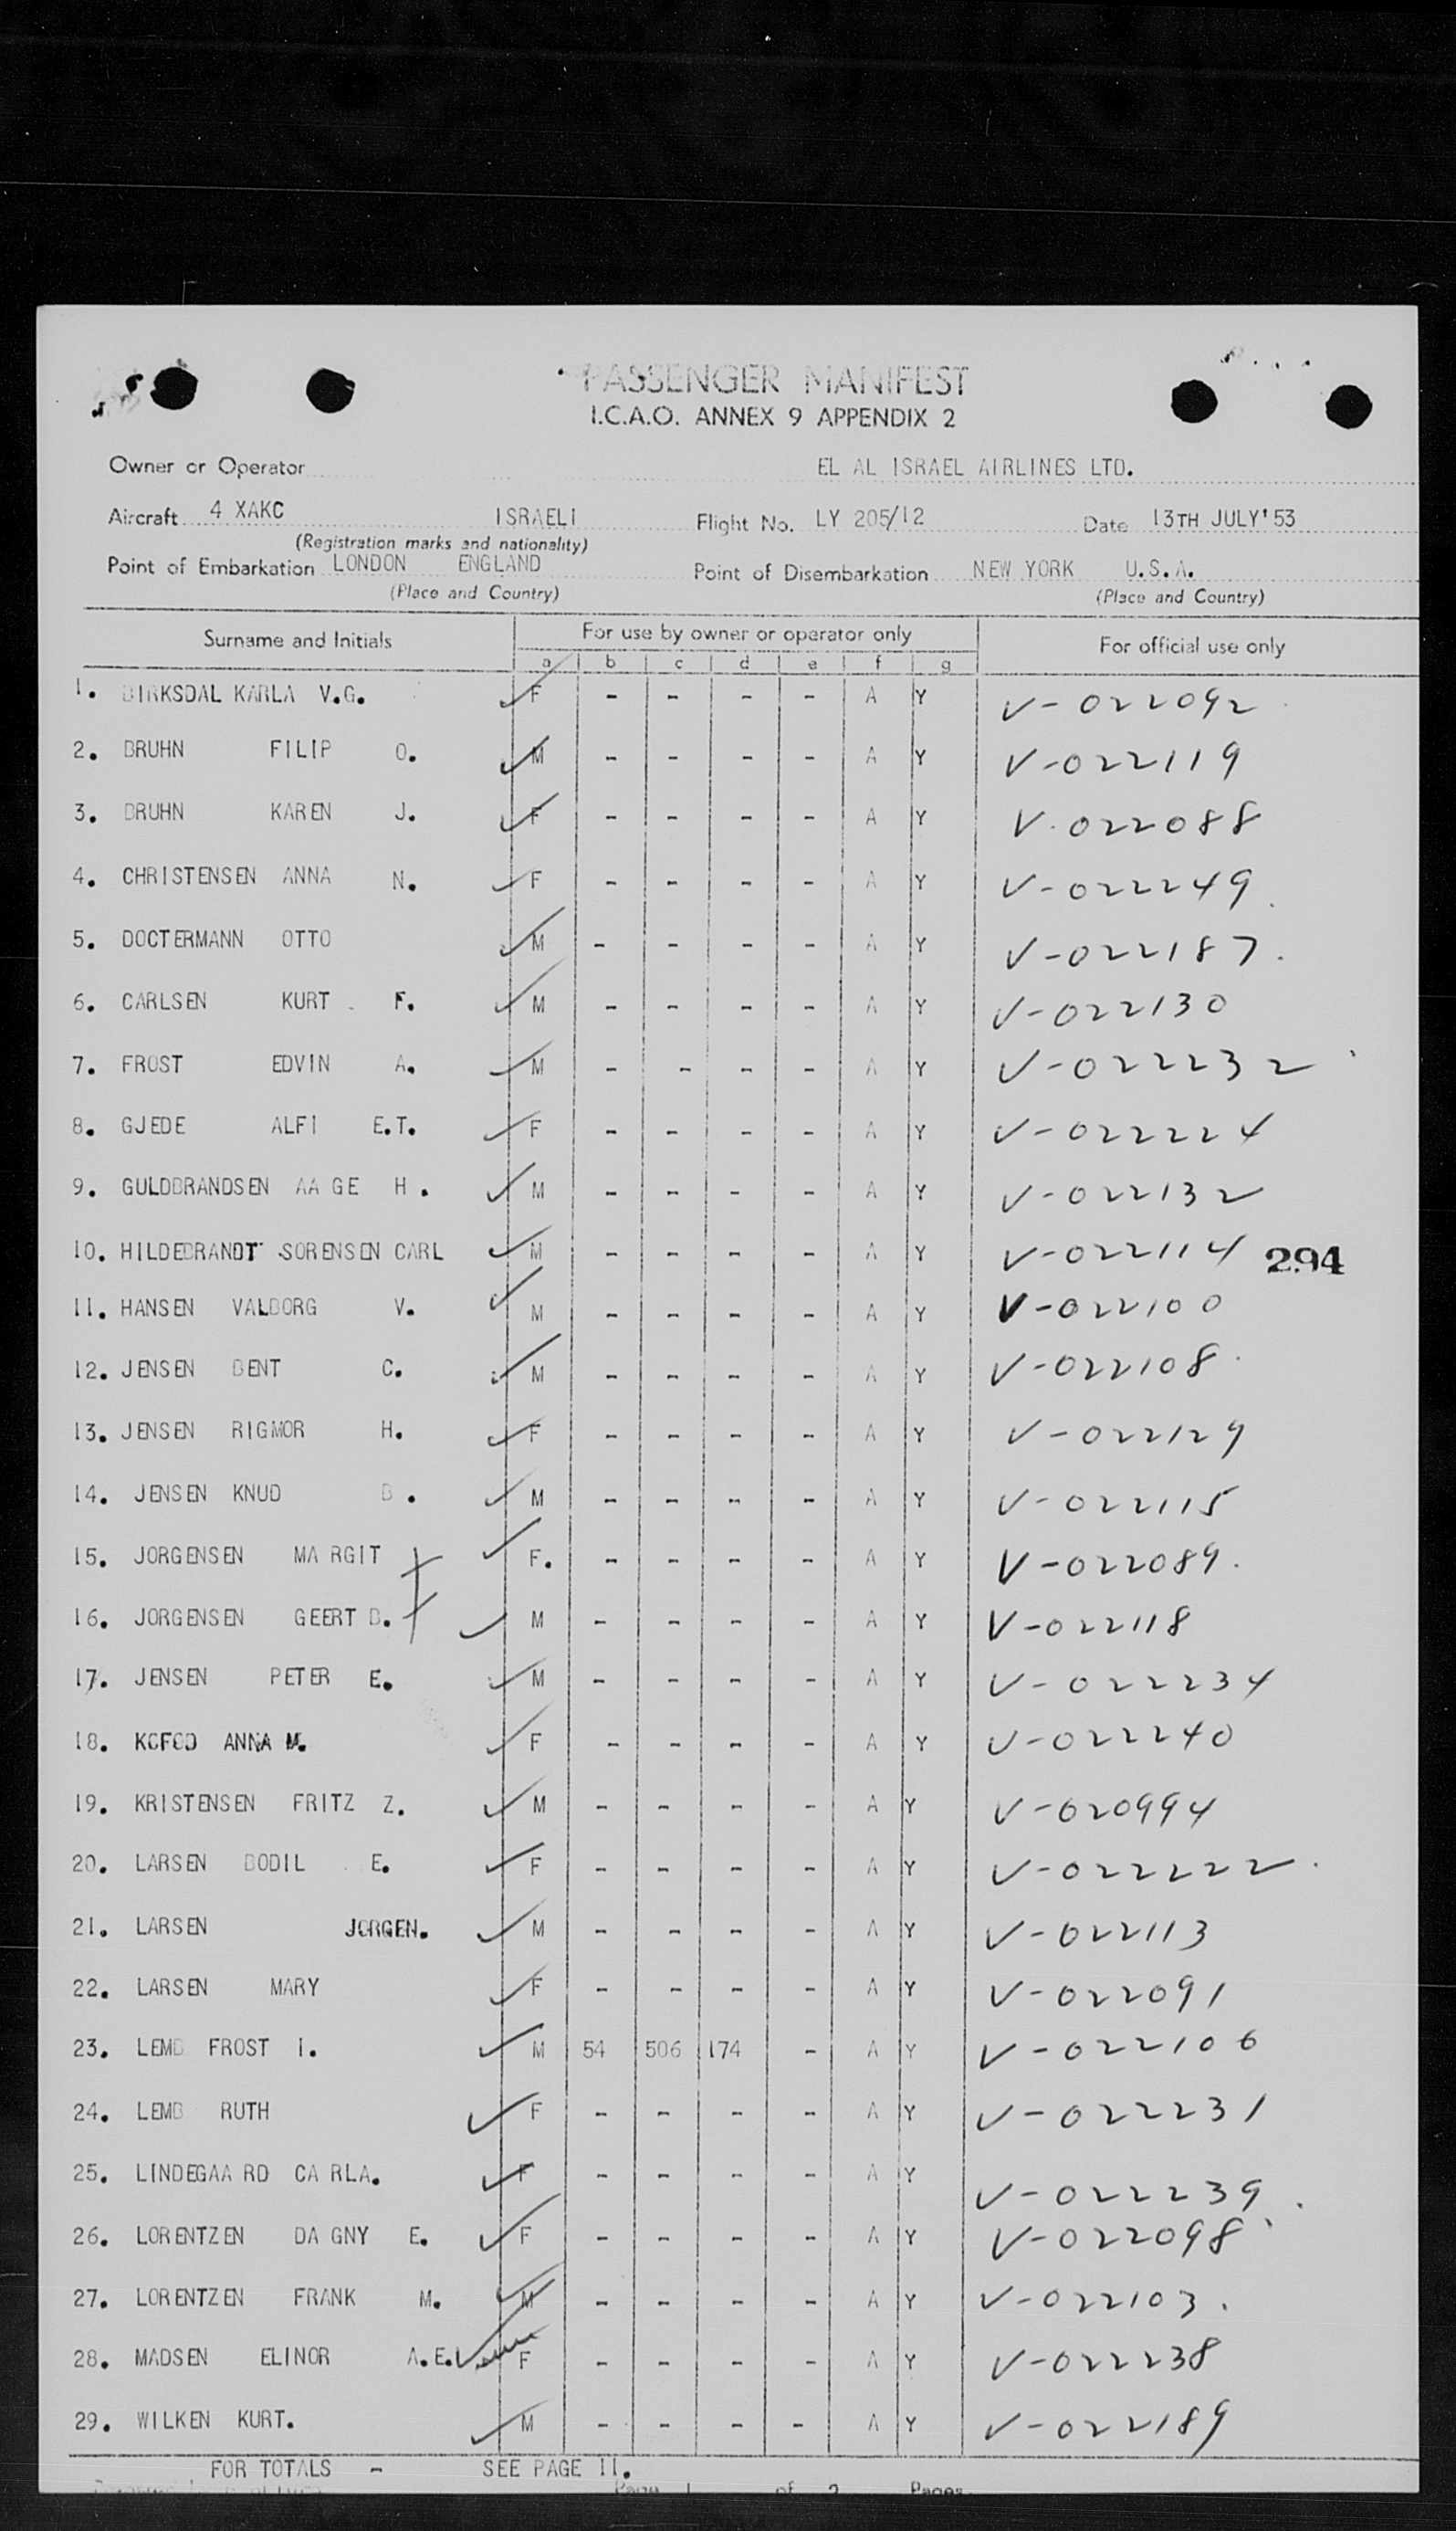 PASSENGER MANIFEST
I.C.A.O. ANNEX 9 APPENDIX 2
Owner or Operator EL AL ISRAEL AIRLINES LTD.
Aircraft 4 XAKC ISRAELI Flight No. LY 205/12 Date 13TH JULY'53
(Registration marks and nationality)
Point of Embarkation LONDON ENGLAND Point of Disembarkation NEW YORK U.S.A.
(Place and Country) (Place and Country)
Surname and Initials For use by owner or operator only For official use only
a b c d e f g
1. BIRKSDAL KARLA V.G. F - - - - A Y V-022092
2. BRUHN FILIP O. M - - - - A Y V-022119
3. BRUHN KAREN J. F - - - - A Y V-022088
4. CHRISTENSEN ANNA N. F - - - - A Y V-022249
5. DOCTERMANN OTTO M - - - - A Y V-022187.
6. CARLSEN KURT F. M - - - - A Y V-022130
7. FROST EDVIN A. M - - - - A Y V-022232
8. GJEDE ALFI E.T. F - - - - A Y V-022224
9. GULDBRANDSEN AAGE H. M - - - - A Y V-022132
10. HILDEBRANDT SORENSEN CARL M - - - - A Y V-022114 294
11. HANSEN VALBORG V. M - - - - A Y V-022100
12. JENSEN BENT C. M - - - - A Y V-022108
13. JENSEN RIGMOR H. F - - - - A Y V-022129
14. JENSEN KNUD B. M - - - - A Y V-022115
15. JORGENSEN MARGIT F. - - - - A Y V-022089.
16. JORGENSEN GEERT B. M - - - - A Y V-022118
17. JENSEN PETER E. M - - - - A Y V-022234
18. KOFOD ANNA M. F - - - - A Y V-022240
19. KRISTENSEN FRITZ Z. M - - - - A Y V-020994
20. LARSEN BODIL E. F - - - - A Y V-022222.
21. LARSEN JORGEN. M - - - - A Y V-022113
22. LARSEN MARY F - - - - A Y V-022091
23. LEMB FROST I. M 54 506 174 - A Y V-022106
24. LEMB RUTH F - - - - A Y V-022231
25. LINDEGAARD CARLA. F - - - - A Y V-022239.
26. LORENTZEN DAGNY E. F - - - - A Y V-022098
27. LORENTZEN FRANK M. M - - - - A Y V-022103.
28. MADSEN ELINOR A.E. F - - - - A Y V-022238
29. WILKEN KURT. M - - - - A Y V-022189
FOR TOTALS - SEE PAGE 11.
Page 1 of 2 Pages